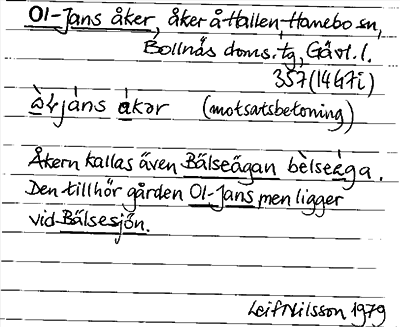 Ol-Jans åker, åker å Hallen, Hanebo sn,
Bollnäs doms.tg, Gävl.l.
357 (14G7i)
àɫjàns ákər (motsatsbetoning)
Åkern kallas även Bälseägan bèlseága.
Den tillhör gården Ol-Jans men ligger
vid Bälsesjön.
Leif Nilsson 1979